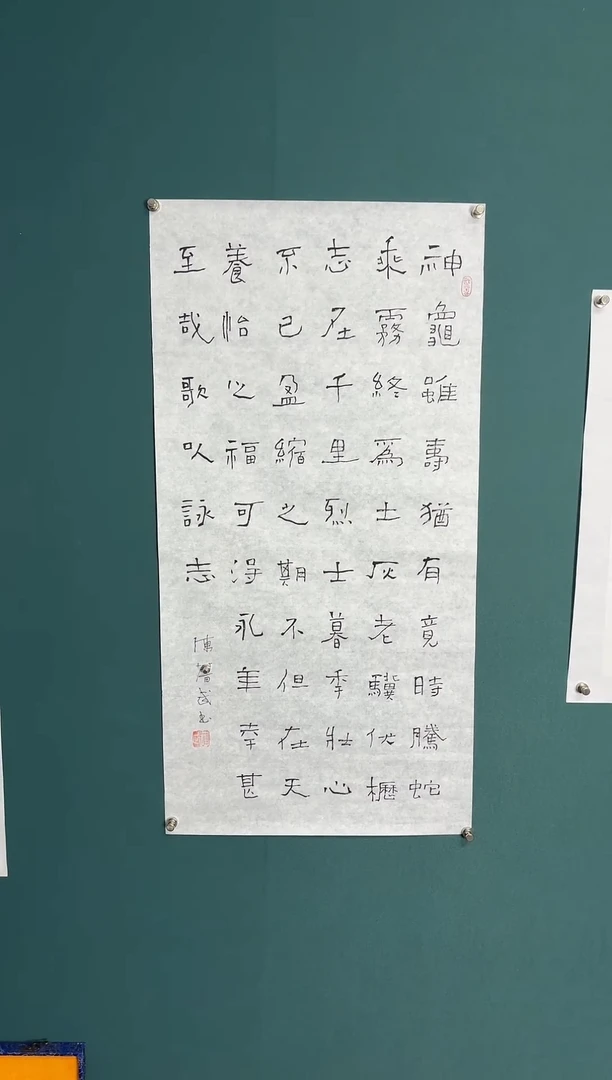 神龜雖壽猶有竟時騰蛇
乘霧終爲土灰老驥伏櫪
志在千里烈士暮年壯心
不已盈縮之期不但在天
養怡之福可得永年幸甚
至哉歌以詠志
陳武書